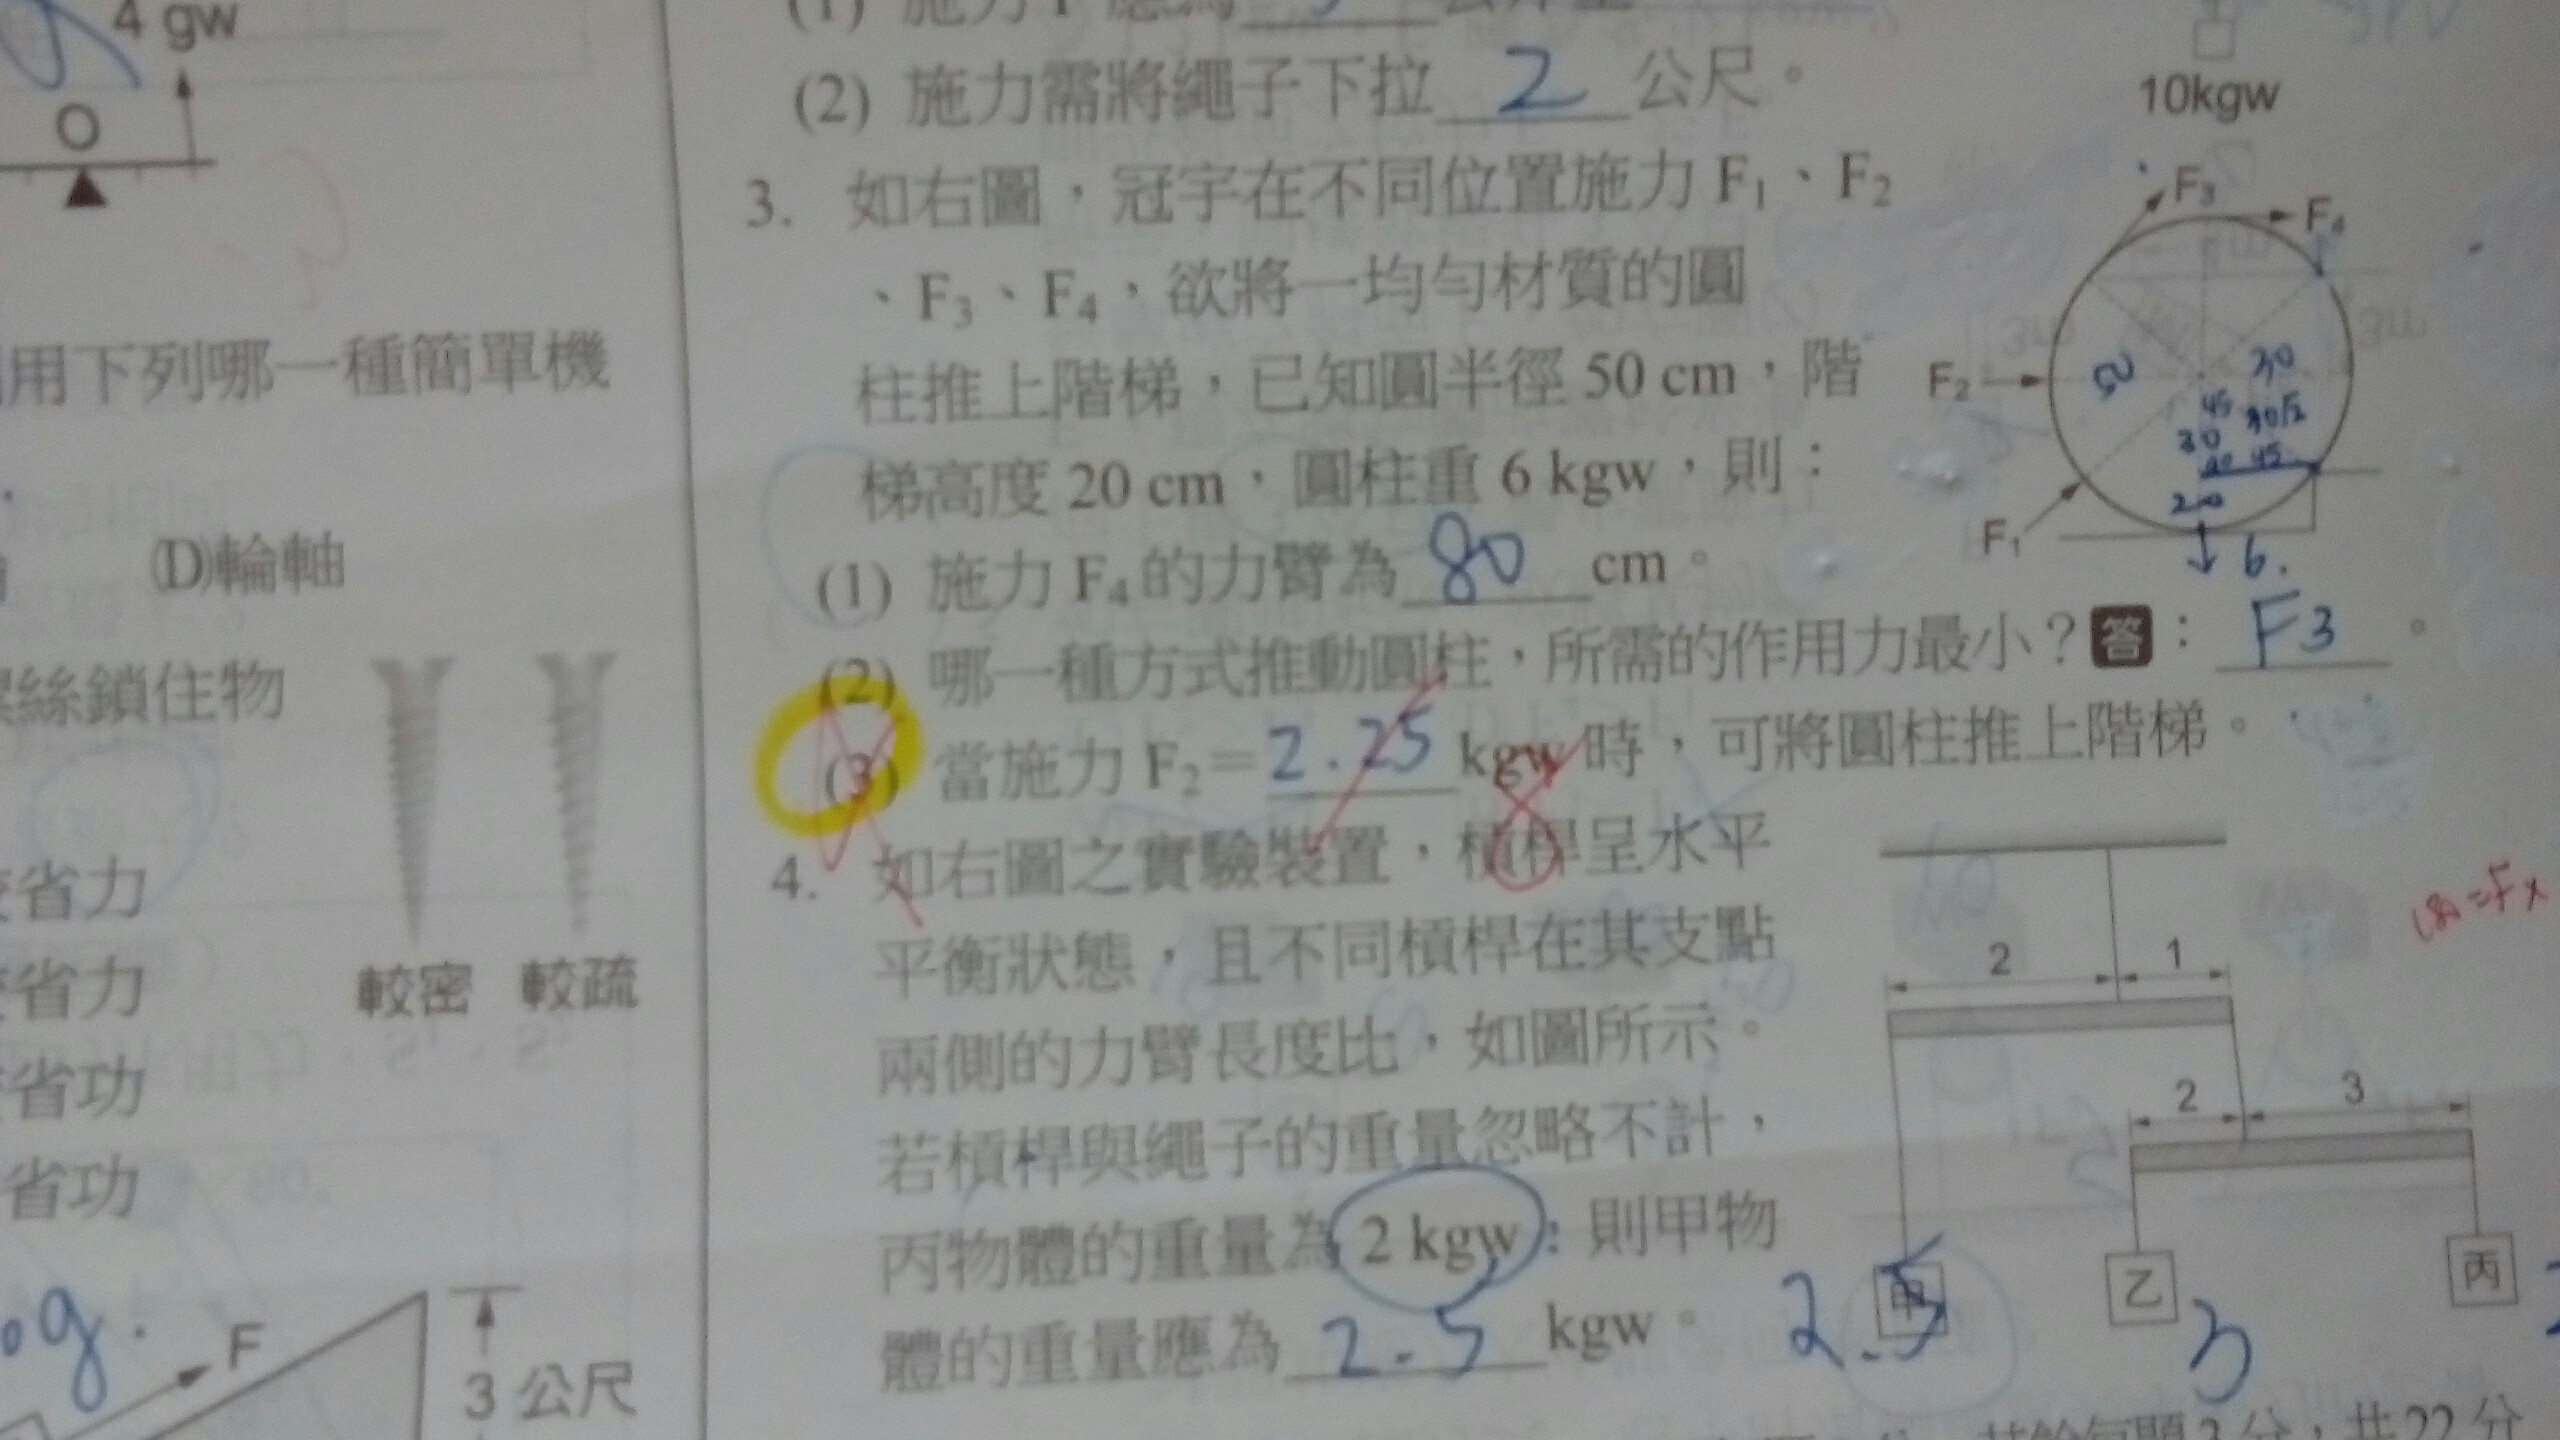 4 gw
O
用下列哪一種簡單機
(D)輪軸
絲鎖住物
省力
省力
省功
省功
較密 較疏
F
3 公尺
(2) 施力需將繩子下拉 2 公尺。
10kgw
3. 如右圖,冠宇在不同位置施力 F₁、F₂
、F₃、F₄,欲將一均勻材質的圓
柱推上階梯,已知圓半徑 50 cm,階
梯高度 20 cm,圓柱重 6 kgw,則:
(1) 施力 F₄ 的力臂為 80 cm。
(2) 哪一種方式推動圓柱,所需的作用力最小?答: F3 。
(3) 當施力 F₂= 2.25 kgw 時,可將圓柱推上階梯。
F₃
F₄
F₂
F₁
50
30
45
30
20
6.
4. 如右圖之實驗裝置,槓桿呈水平
平衡狀態,且不同槓桿在其支點
兩側的力臂長度比,如圖所示。
若槓桿與繩子的重量忽略不計,
丙物體的重量為 2 kgw;則甲物
體的重量應為 2.5 kgw。
2 1
2 3
甲 乙 丙
2.5 3